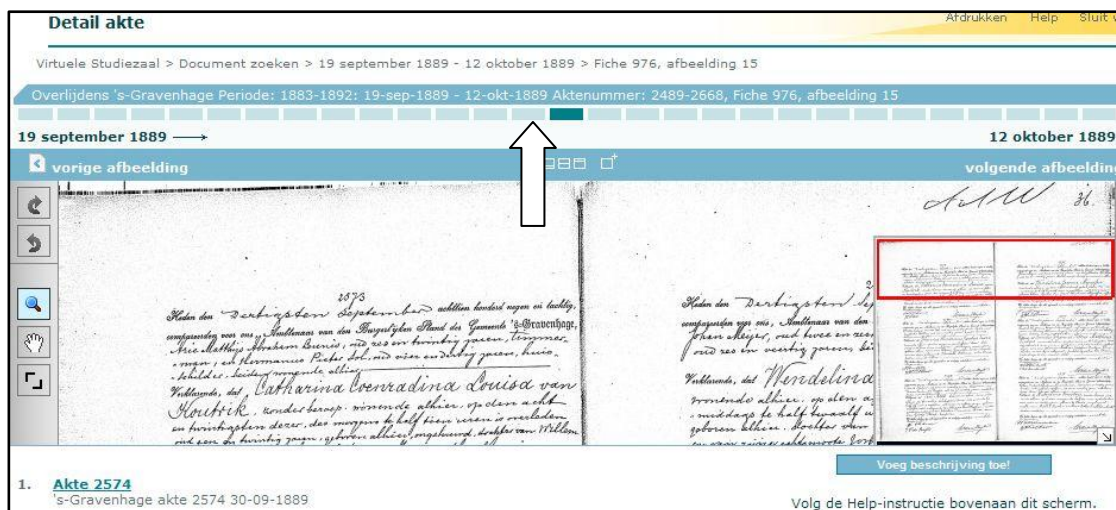 Detail akte
Afdrukken Help Sluit v
Virtuele Studiezaal > Document zoeken > 19 september 1889 - 12 oktober 1889 > Fiche 976, afbeelding 15
Overlijdens 's-Gravenhage Periode: 1883-1892: 19-sep-1889 - 12-okt-1889 Aktenummer: 2489-2668, Fiche 976, afbeelding 15
19 september 1889
12 oktober 1889
vorige afbeelding
volgende afbeelding
36.
2573
Heden den Dertigsten September achttien honderd negen en tachtig,
compareerden voor ons, Ambtenaar van den Burgerlijken Stand der Gemeente 's-Gravenhage,
Arie Matthijs Abraham, oud zes en twintig jaren, timmer-
man, en Hermanus Pieter, oud vier en dertig jaren, huis-
schilder, beiden wonende alhier
Verklarende, dat Catharina Coenradina Louisa van
Houtrik, zonder beroep, wonende alhier, op den acht
en twintigsten dezer, des morgens te half tien uren is overleden
oud een en twintig jaren, geboren alhier, ongehuwd, dochter van Willem
Heden den Dertigsten Sep
compareerden voor ons, Ambtenaar van den
Johan Meijer, oud twee en zes
oud zes en veertig jaren,
Verklarende, dat Wendelina
wonende alhier, op den a
middags te half twaalf u
geboren alhier, dochter van
Voeg beschrijving toe!
1. Akte 2574
's-Gravenhage akte 2574 30-09-1889
Volg de Help-instructie bovenaan dit scherm.